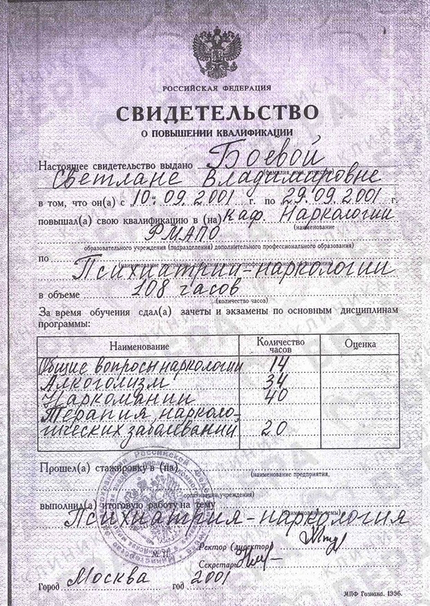 РОССИЙСКАЯ ФЕДЕРАЦИЯ
СВИДЕТЕЛЬСТВО
О ПОВЫШЕНИИ КВАЛИФИКАЦИИ
Настоящее свидетельство выдано Боевой
Светлане Владимировне
в том, что он(а) с 10.09.2001 г. по 29.09.2001 г.
повышал(а) свою квалификацию в (на) каф. Наркологии
(наименование
РМАПО
образовательного учреждения (подразделения) дополнительного профессионального образования)
по Психиатрии-наркологии
в объеме 108 часов
(количество часов)
За время обучения сдал(а) зачеты и экзамены по основным дисциплинам
программы:
Наименование Количество часов Оценка
Общие вопросы наркологии 14
Алкоголизм 34
Наркомании 40
Терапия нарколо-
гических заболеваний 20
Прошел(а) стажировку в (на)
(наименование предприятия,
организации, учреждения)
выполнил(а) итоговую работу на тему
Психиатрия-наркология
Ректор (директор)
Секретарь
Город Москва год 2001
МПФ Гознака. 1996.